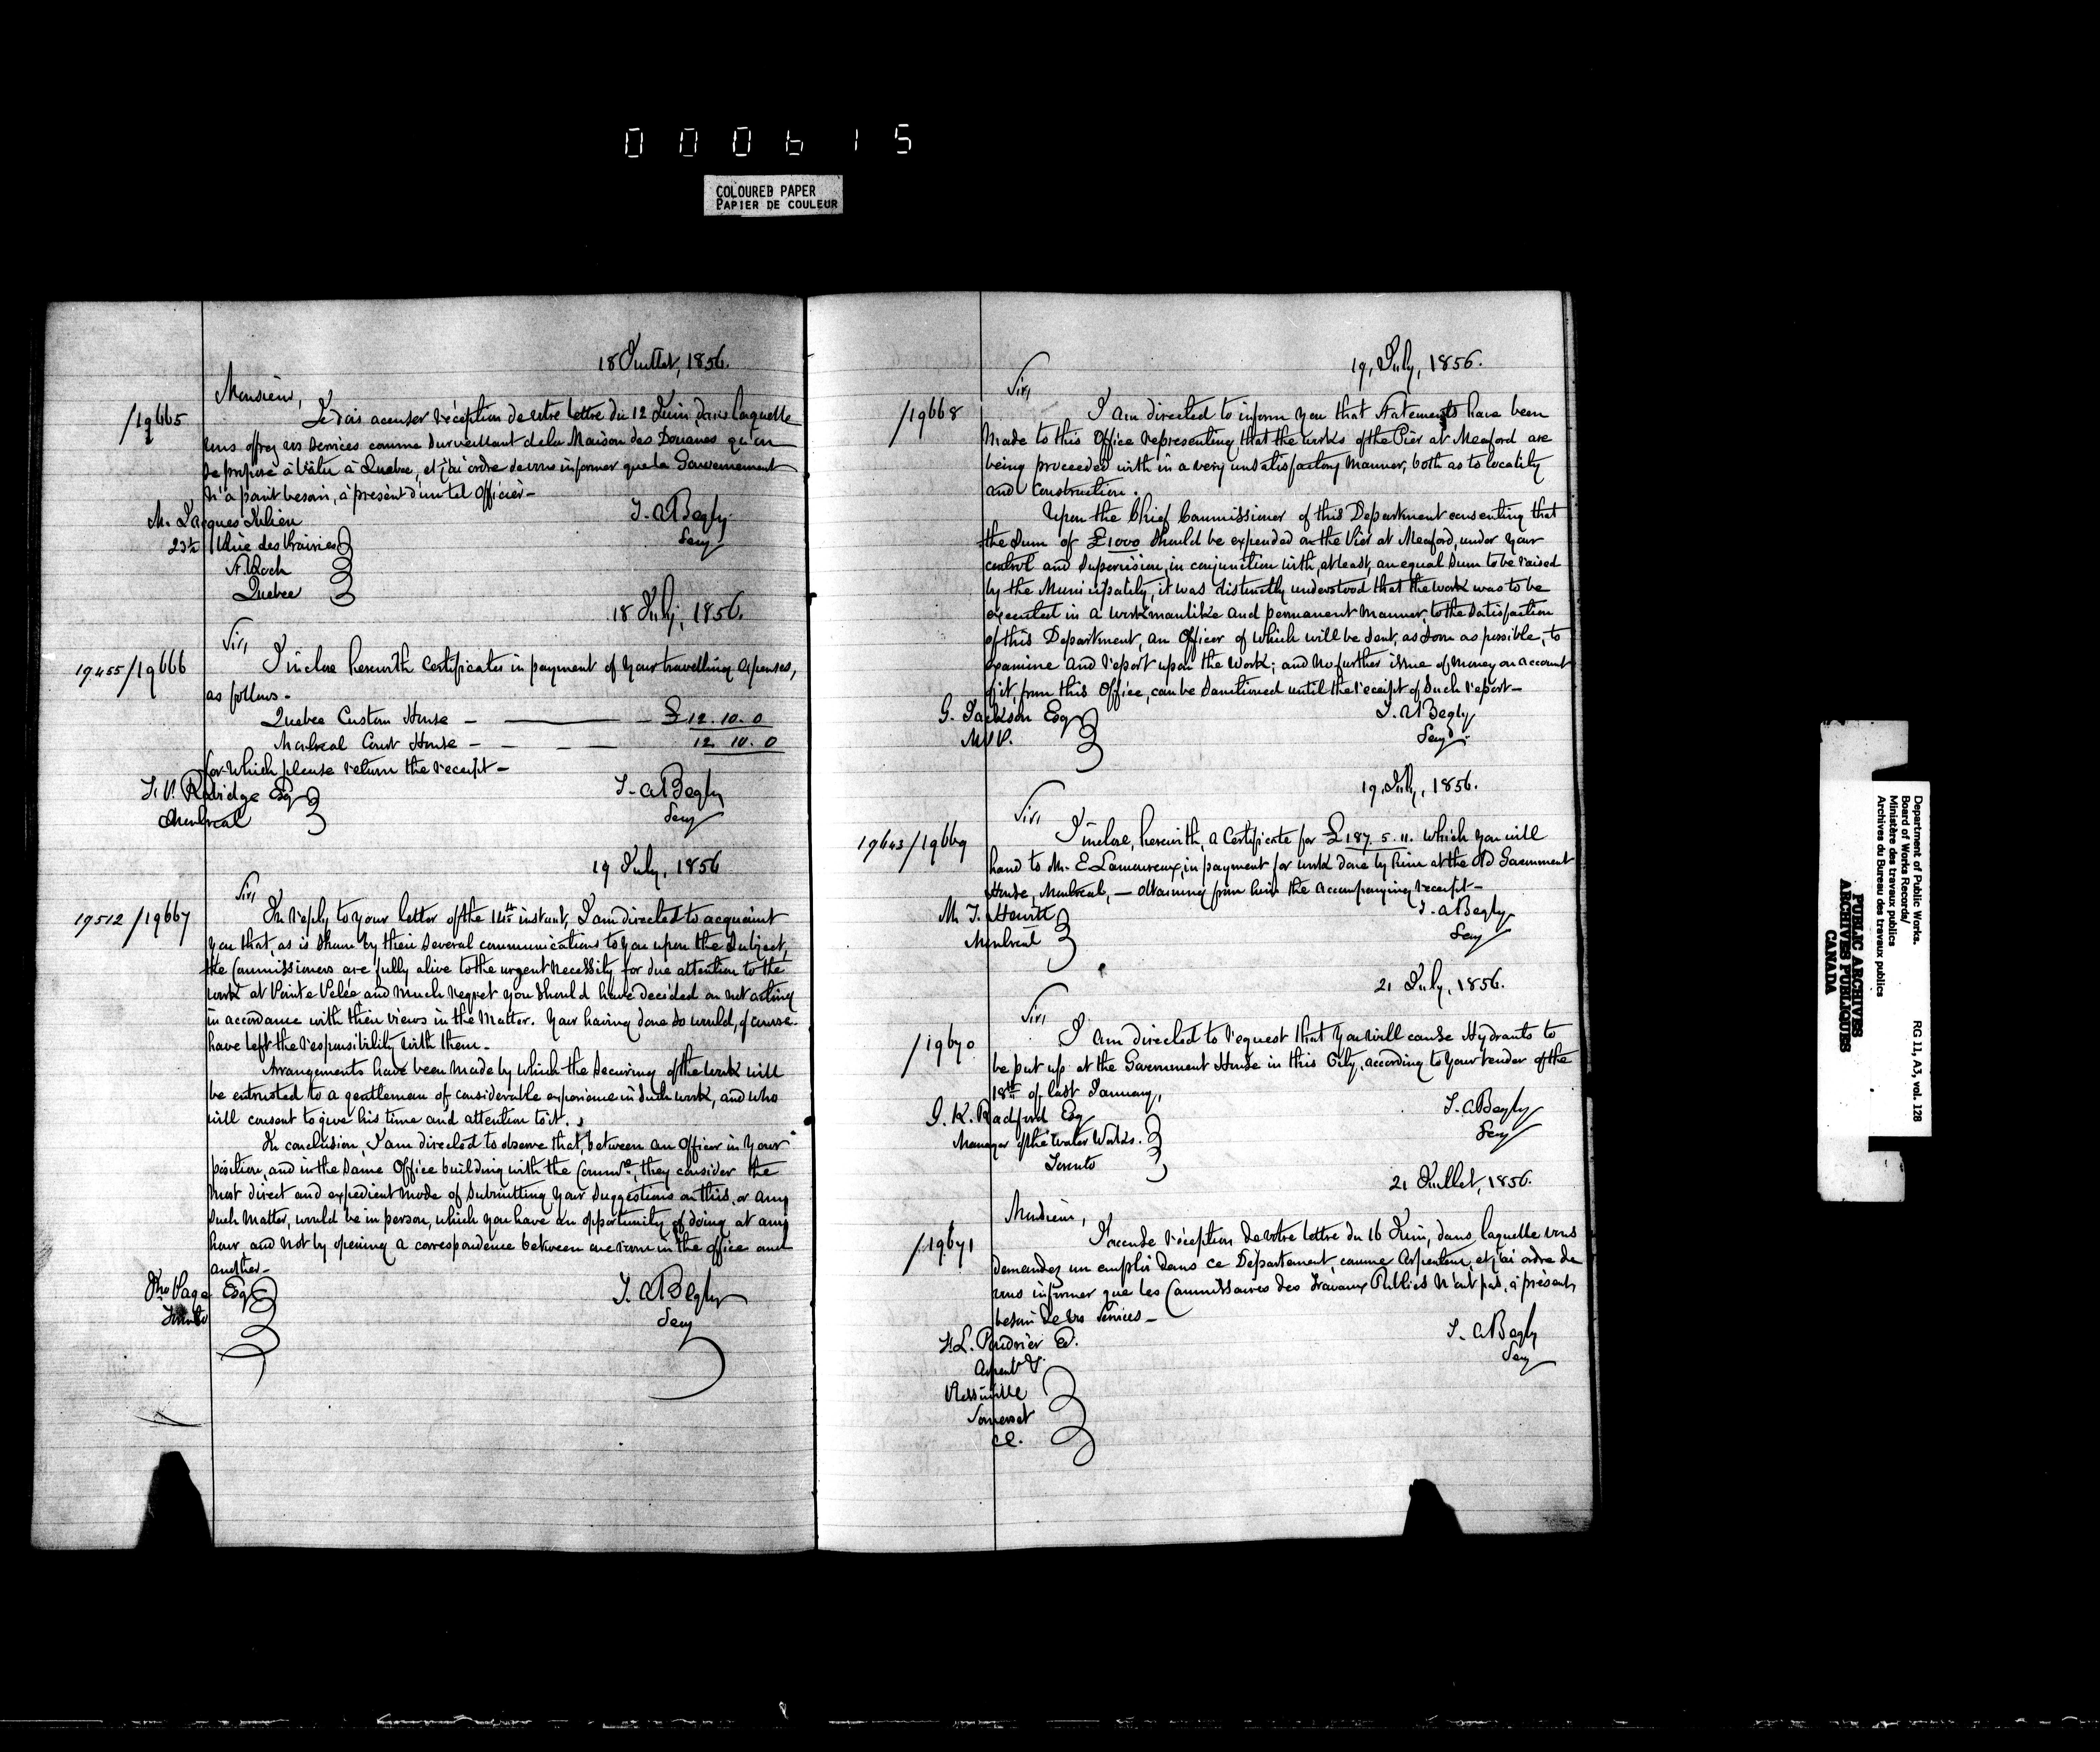 000615
COLOURED PAPER
PAPIER DE COULEUR
18 Juillet, 1856.
Monsieur,
/19665
Je dois accuser réception de votre lettre du 12 Juin, dans laquelle
vous offrez vos services comme Surveillant de la Maison des Douanes qu'on
se propose à bâtir à Quebec, et j'ai ordre de vous informer que le Gouvernement
n'a point besoin, à présent d'un tel Officier -
M. Jacques Julien
23½ Rue des Prairies
St. Roch
Quebec
T. A Begly
Secy
18 July, 1856.
Sir,
19455/19666
I inclose herewith Certificates in payment of your travelling expenses,
as follows -
Quebec Custom House - £12. 10. 0
Montreal Court House - 12 10. 0
for which please return the receipt -
F. P. Rubidge Esq
Montreal
T. A Begly
Secy
19 July, 1856
Sir,
19512/19667
In reply to your letter of the 14th instant, I am directed to acquaint
you that, as is shown by their several communications to you upon the subject,
the Commissioners are fully alive to the urgent necessity for due attention to the
work at Point Pelée and much regret you should have decided on not acting
in accordance with their views in the matter. Your having done so would, of course
have left the responsibility with them -
Arrangements have been made by which the securing of the work will
be entrusted to a gentleman of considerable experience in such work, and who
will consent to give his time and attention to it.
In conclusion, I am directed to observe that, between an Officer in your
position, and in the same Office building with the Commrs, they consider the
most direct and expedient mode of submitting your suggestions on this, or any
such matter, would be in person, which you have an opportunity of doing at any
hour, and not by opening a correspondence between one room in the office and
another -
Jno Page Esq
Toronto
T. A Begly
Secy
19, July, 1856.
Sir,
/19668
I am directed to inform you that Statements have been
made to this Office representing that the works of the Pier at Meaford are
being proceeded with in a very unsatisfactory manner, both as to locality
and construction.
Upon the Chief Commissioner of this Department consenting that
the sum of £1000 should be expended on the Pier at Meaford, under your
control and supervision, in conjunction with, at least, an equal sum to be raised
by the Municipality, it was distinctly understood that the work was to be
executed in a workmanlike and permanent manner, to the satisfaction
of this Department, an Officer of which will be sent, as soon as possible, to
examine and report upon the work; and no further issue of money on account
of it, from this Office, can be sanctioned until the receipt of such report -
G. Jackson Esq
M.P.P.
T. A Begly
Secy
19. July, 1856.
Sir,
19643/19669
I inclose, herewith, a Certificate for £187. 5. 11. which you will
hand to Mr. E. Lamoureux, in payment for work done by him at the Old Government
House, Montreal, — obtaining from him the accompanying receipt -
M. T. Hewitt
Montreal
T. A Begly
Secy
21 July, 1856.
Sir,
/19670
I am directed to request that you will cause Hydrants to
be put up at the Government House in this City, according to your tender of the
18th of last January,
J. K. Radford Esq
Manager of the Water Works.
Toronto
T. A Begly
Secy
21 Juillet, 1856.
Monsieur,
/19671
J'accuse réception de votre lettre du 16 Juin, dans laquelle vous
demandez un emploi dans ce Département, comme Arpenteur, et j'ai ordre de
vous informer que les Commissaires des Travaux Publics n'ont pas, à présent,
besoin de vos Services -
F. L. Poudrier
Somerset
CE.
T. A Begly
Secy
Department of Public Works. RG 11, A3, vol. 128
Board of Works Records/
Ministère des travaux publics
Archives du Bureau des travaux publics
PUBLIC ARCHIVES
ARCHIVES PUBLIQUES
CANADA